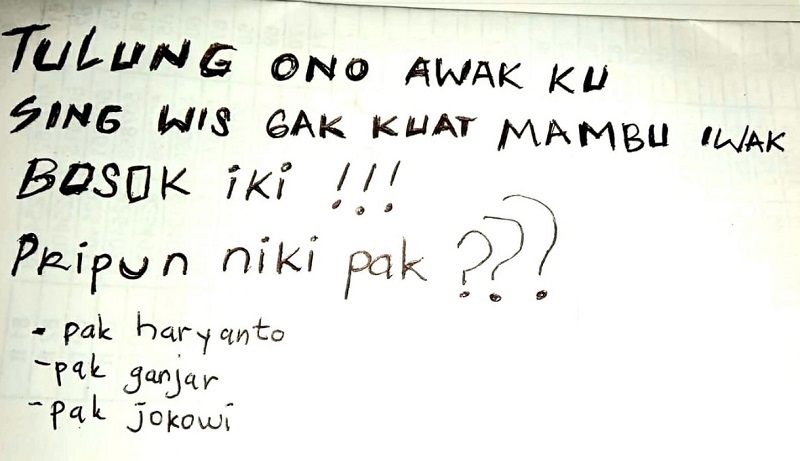 TULUNG ONO AWAK KU
SING WIS GAK KUAT MAMBU IWAK
BOSOK iKi !!!
PRipun niki pak ???
- pak haryanto
- pak ganjar
- pak jokowi